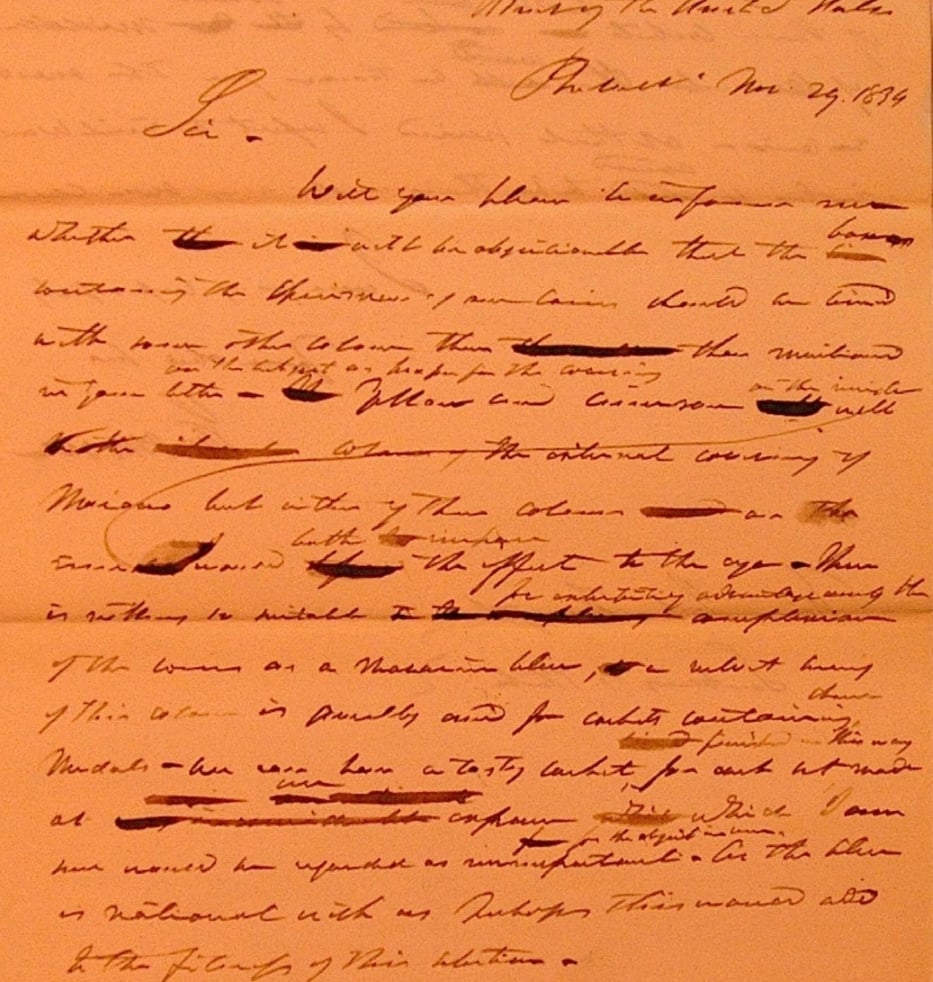 Mint of the United States
Philad. Nov. 29. 1834
Sir.
Will you please to inform me
whether it will be objectionable that the boxes
containing the specimens of our coins should be lined
with some other colour than those mentioned
on the subject as proper for the covering
in your letter - Yellow and crimson will
on the inside
the external covering of
Morocco but either of these colours as the
both
would the effect to the eye - There
for exhibiting advantageously the
is nothing so suitable to complexion
of the coins as a Mazarine blue, a velvet lining
of this colour is generally used for caskets containing
choice
finished in this way
Medals - we can have a tasty casket, for each set made
at expense which I am
for the object in view.
sure would be regarded as unimportant. As the blue
is national with us perhaps this would add
to the fitness of this selection -